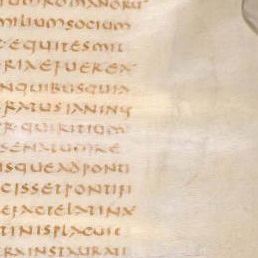 TUMROMANORU
MILIUMSOCIUM
TEQUITESMIL
RIAEFUEREA
NQUIBUSQUIA
RATUSLANIUIN
RQUIRITIUM
SENATUMRE
USQUEADPONTI
CISSETPONTIFI
EFACTELATINA
TINISPLACUIT
RAINSTAURATI